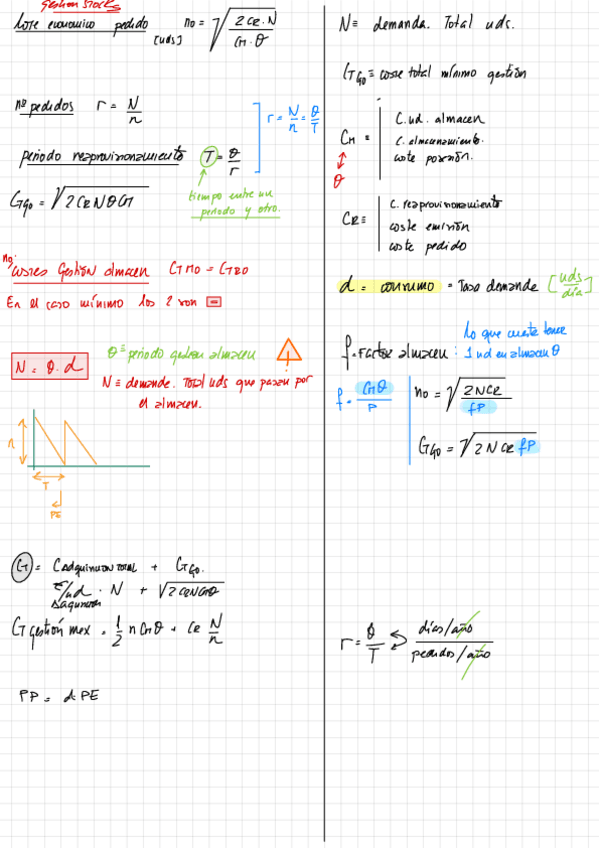 Gestión stocks
Lote economico pedido [uds] no = √(2CR·N / CM·θ)
nº pedidos r = N/n
r = N/n = θ/T
periodo reaprovisionamiento T = θ/r
tiempo entre un periodo y otro.
CTG0 = √2CRNθCM
no:
Costes Gestión almacen CTMO = CTRO
En el caso mínimo los 2 son =
N = θ·d
θ ≡ periodo gestion almacen
N ≡ demanda. Total uds que pasan por
el almacen.
n
T
PE
CT = Cadquisicion TOTAL + CTG0.
€/ud · N + √2CRNCMθ
adquisicion
CT gestión mex = 1/2 n CMθ + CR N/n
PP = d·PE
N ≡ demanda. Total uds.
CTG0 ≡ coste total mínimo gestión
CM ≡
θ
C. ud. almacen
C. almacenamiento.
coste posesión.
CR ≡
C. reaprovisionamiento
coste emisión
coste pedido
d = consumo = Tasa demanda [uds/día]
f. Factor almacen: Lo que cuesta tener
1 ud en almacen θ
f = CMθ/P
no = √(2NCR / fP)
CTG0 = √2NCR fP
r = θ/T
días/año
pedidos/año